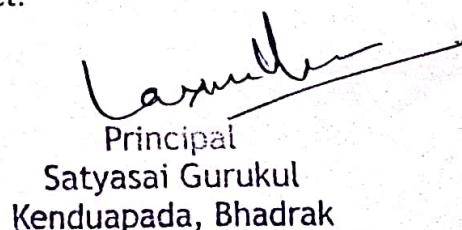 Principal
Satyasai Gurukul
Kenduapada, Bhadrak